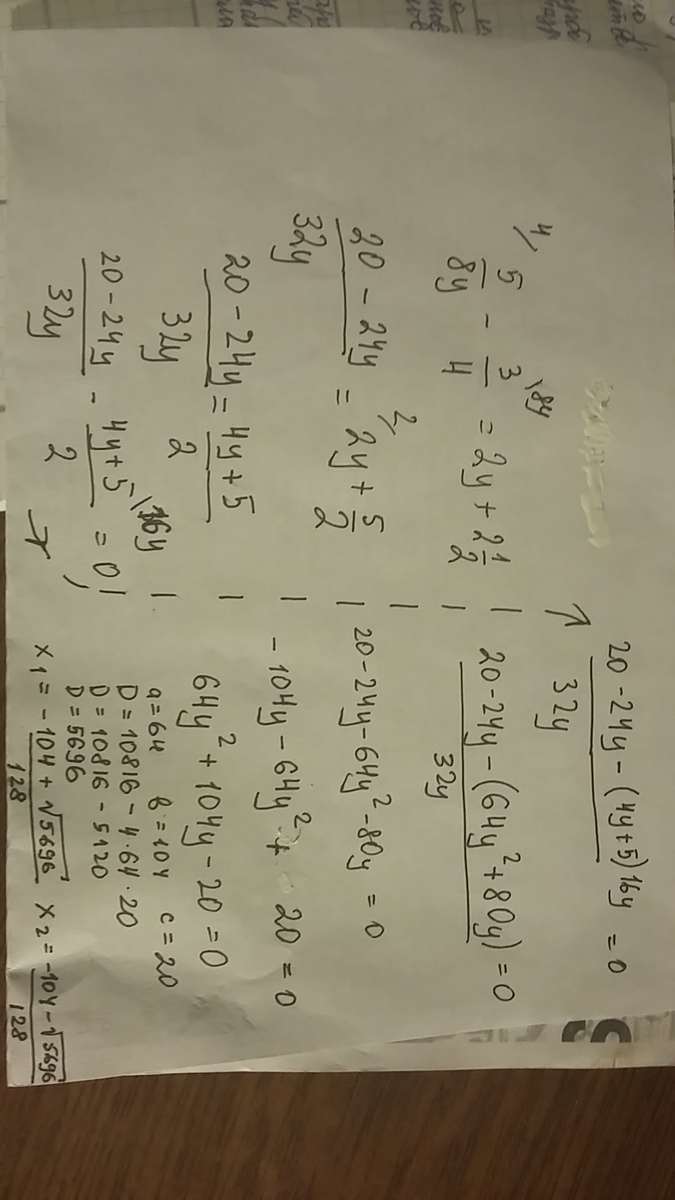 4/ 5/8y - 3/4 \8y = 2y + 2 1/2
20 - 24y / 32y = 2/ 2y + 5/2
20 - 24y / 32y = 4y + 5 / 2
20 - 24y / 32y - 4y + 5 / 2 \16y = 0
20 - 24y - (4y + 5)16y / 32y = 0
20 - 24y - (64y² + 80y) / 32y = 0
20 - 24y - 64y² - 80y = 0
- 104y - 64y² + 20 = 0
64y² + 104y - 20 = 0
a = 64 b = 104 c = 20
D = 10816 - 4·64·20
D = 10816 - 5120
D = 5696
x₁ = -104 + √5696 / 128 x₂ = -104 - √5696 / 128